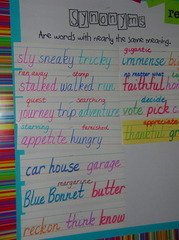 Synonyms
Are words with nearly the same meaning.
gigantic
sly sneaky tricky immense bu
ran away stomp no matter what
stalked walked run faithful hon
quest searching decide
journey trip adventure vote pick c
starving famished appreciate
appetite hungry thankful gr
car house garage
margarine
Blue Bonnet butter
reckon think know